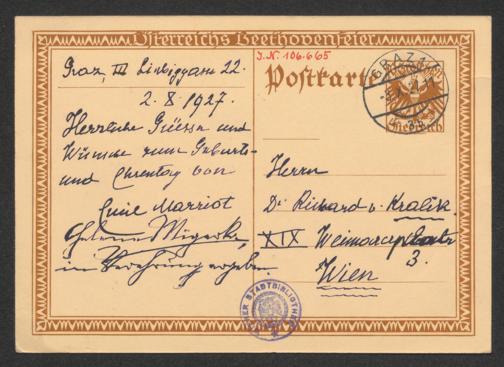 Österreichs Beethovenfeier
I.N. 106.665
Postkarte
GRAZ
Österreich
Graz, III 22.
2. 8. 1927.
Herzliche Grüsse und
Wünsche zum Geburts-
und Ehrentag von
Emil Marriot
Helene Migerka,
in Verehrung ergeben.
Herrn
Dr Richard v. Kralik
XIX Weimarerplatz
3.
Wien
STADTBIBLIOTHEK